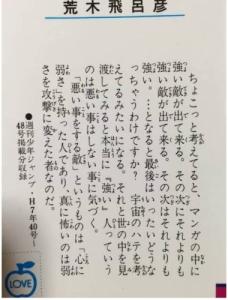 荒木飛呂彦
ちょこっと考えてると、マンガの中に
強い敵が出て来る。その次にそれよりも
強い敵が出て来る。その次はそれよりも
強い。…となると最後はいったいどうな
っちゃうわけですか？宇宙のハテを考
えてるみたいになる。それと世の中を見
渡してみると本当に『強い』人っていう
のは悪い事はしない事に気づく。
「悪い事をする敵」というものは「心に
弱さ」を持った人であり、真に怖いのは弱
さを攻撃に変えた者なのだ。
●週刊少年ジャンプ・H7年40号～
48号掲載分収録
LOVE